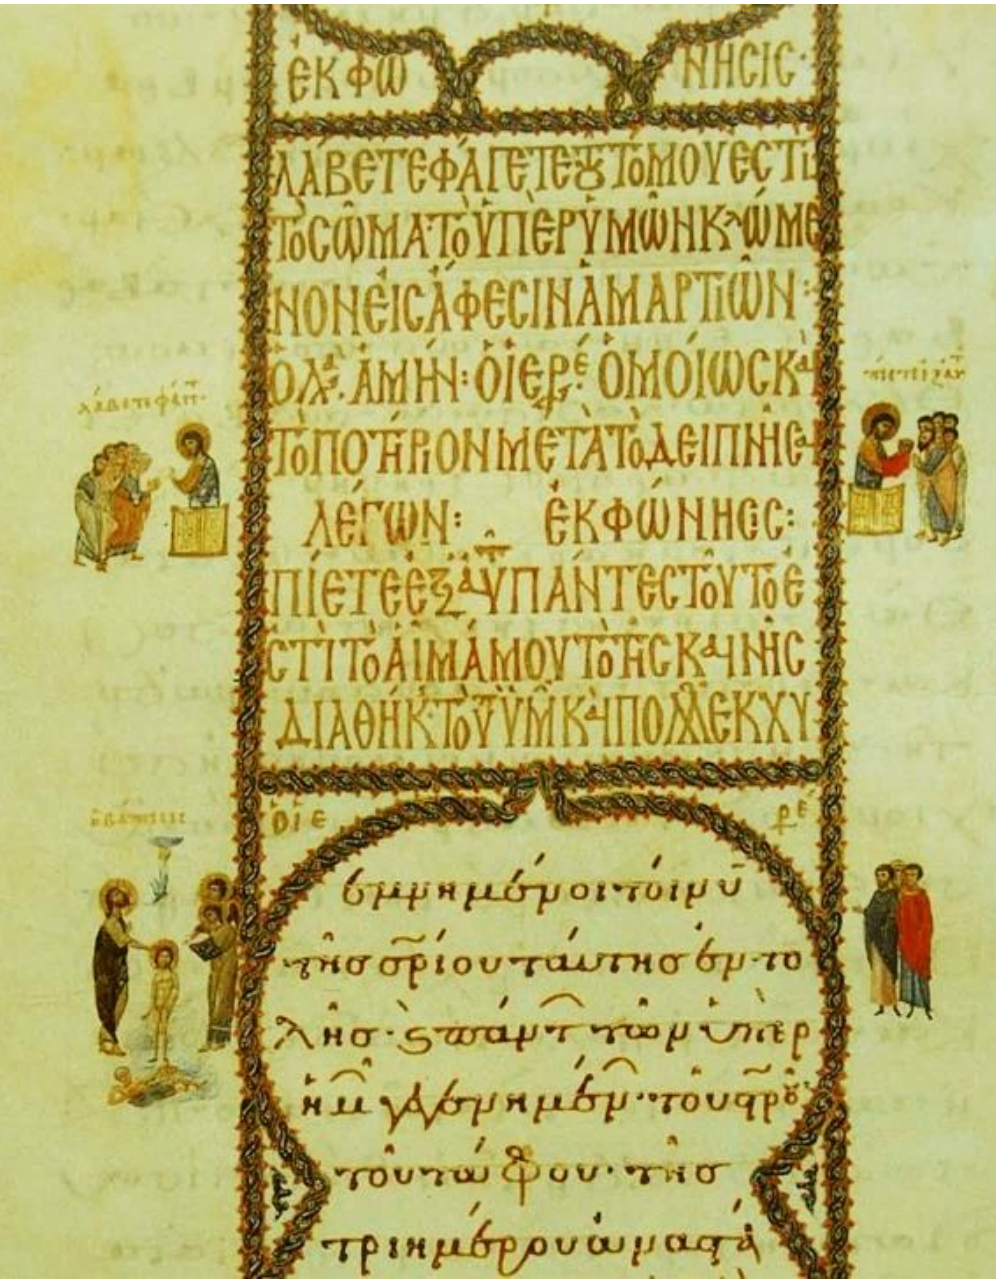 ἘΚΦΩ ΝΗCΙC·
ΛΆΒΕΤΕΦΆΓΕΤΕ ΤΟ͂ΜΟΥΕCΤΙ
ΤῸCΩ͂ΜΑ·ΤῸὙΠῈΡΥ̓ΜΩ͂ΝΚΛΏΜΕ
ΝΟΝΕἸCἌΦΕCΙΝἉΜΑΡΤΙΩ͂Ν:
ΟΛΑ. ἈΜΉΝ: ὉΙΕΡΕ: ὉΜΟΊΩCΚΑΙ
ΤῸΠΟΤΉΡΙΟΝΜΕΤᾺΤῸΔΕΙΠΝΗCΑΙ
ΛΈΓΩΝ: ἘΚΦΏΝΗCΙC:
ΠΊΕΤΕἘΞΑΥΠΆΝΤΕCΤΟΥ͂ΤΟΕ
CΤῚΤῸΑἿΜΆΜΟΥΤῸΤΗ͂CΚΑΙΝΗ͂C
ΔΙΑΘΉΚ·ΤΟΥΥΜΚΑΙΠΟΛΛΕΚΧΥ
λάβετε φάγετ
πίετε ἐξ αυτ
ἡ βάπτισις
ὁ ἱε ρέ
ἐμνημένοι τοίνυ
τῆσ σρίου ταύτησ ἐν το
λῆσ· ϛ πάντ τῶν ὑπὲρ
ἡμ γεγενημέν· τοῦ στρου
τοῦ τάφου· τῆσ
τριημέρου ἀναστά